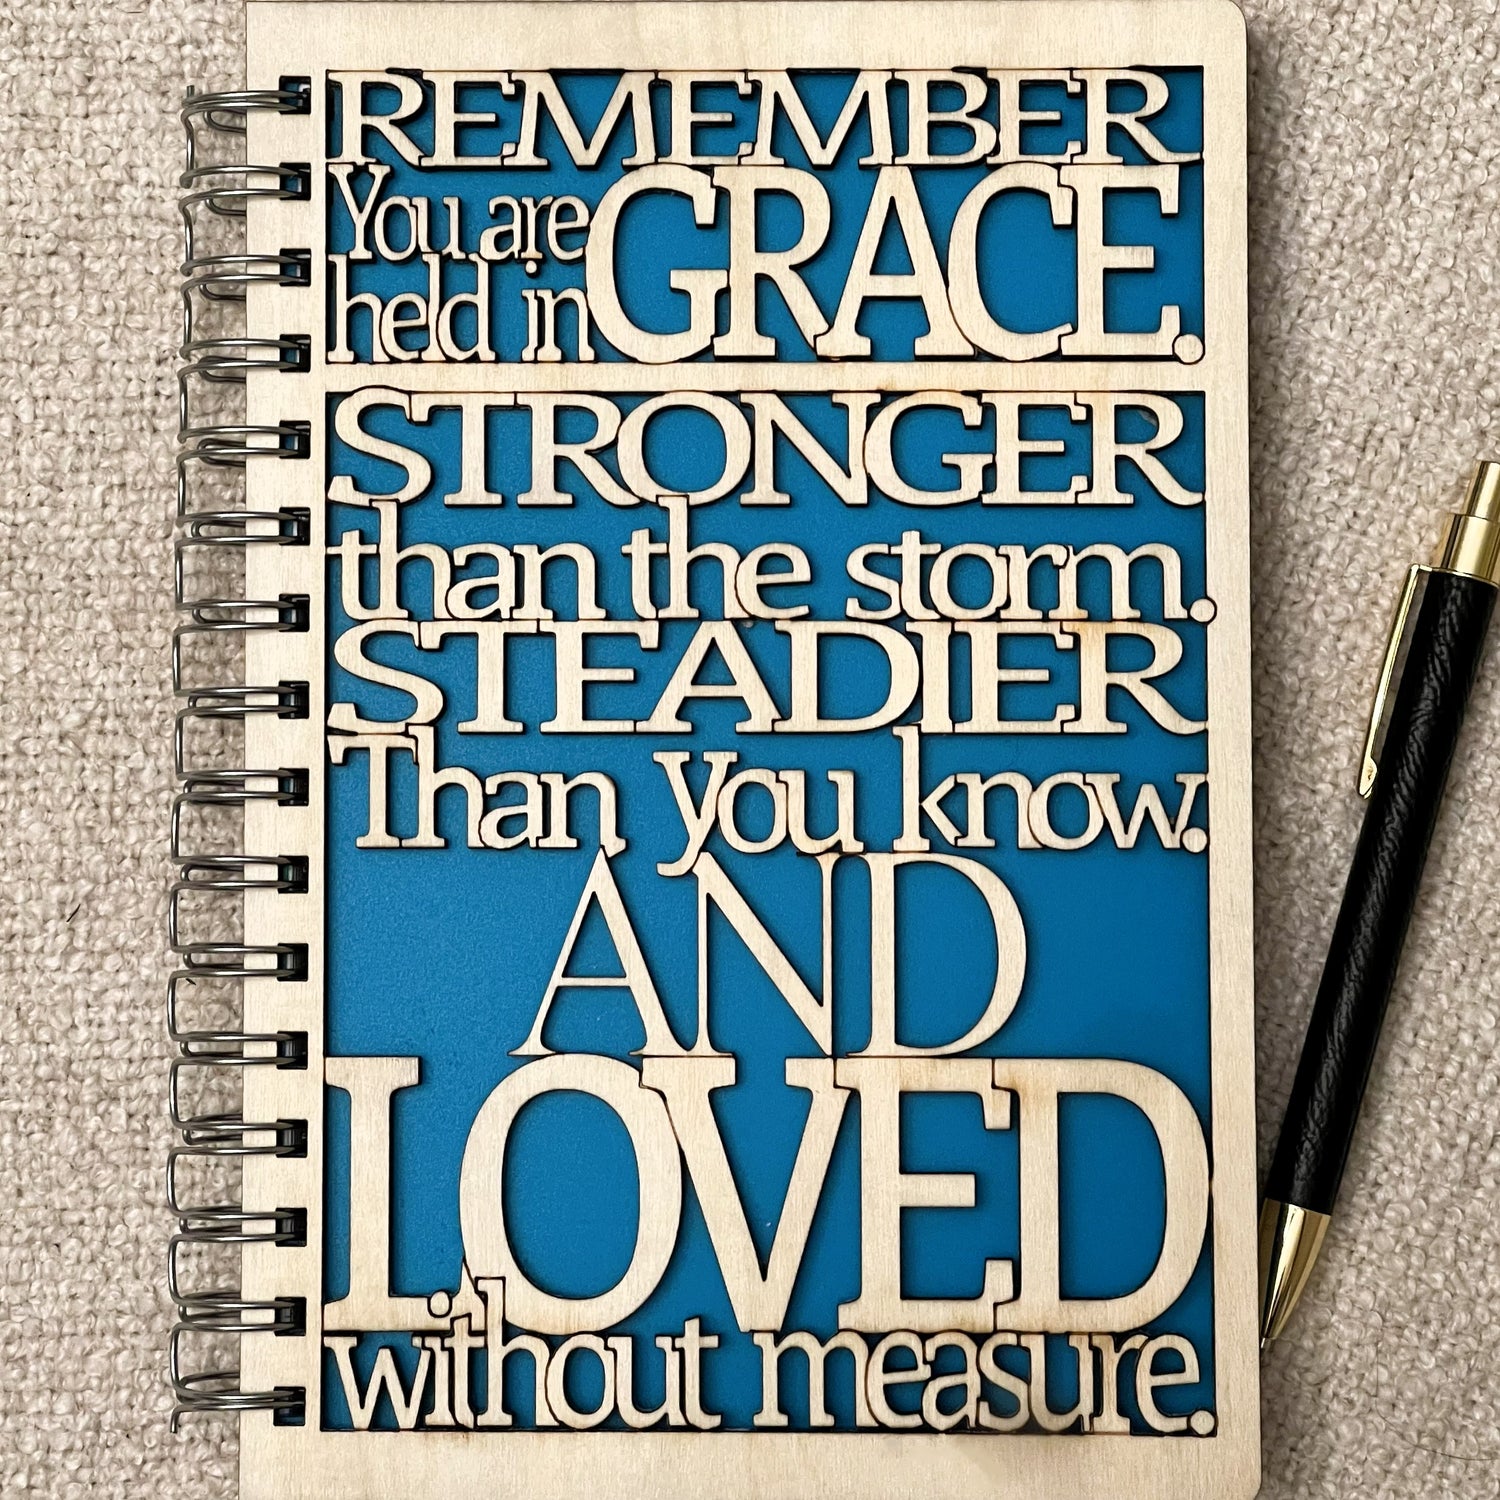 REMEMBER
You are
held in GRACE.
STRONGER
than the storm.
STEADIER
Than you know.
AND
LOVED
without measure.